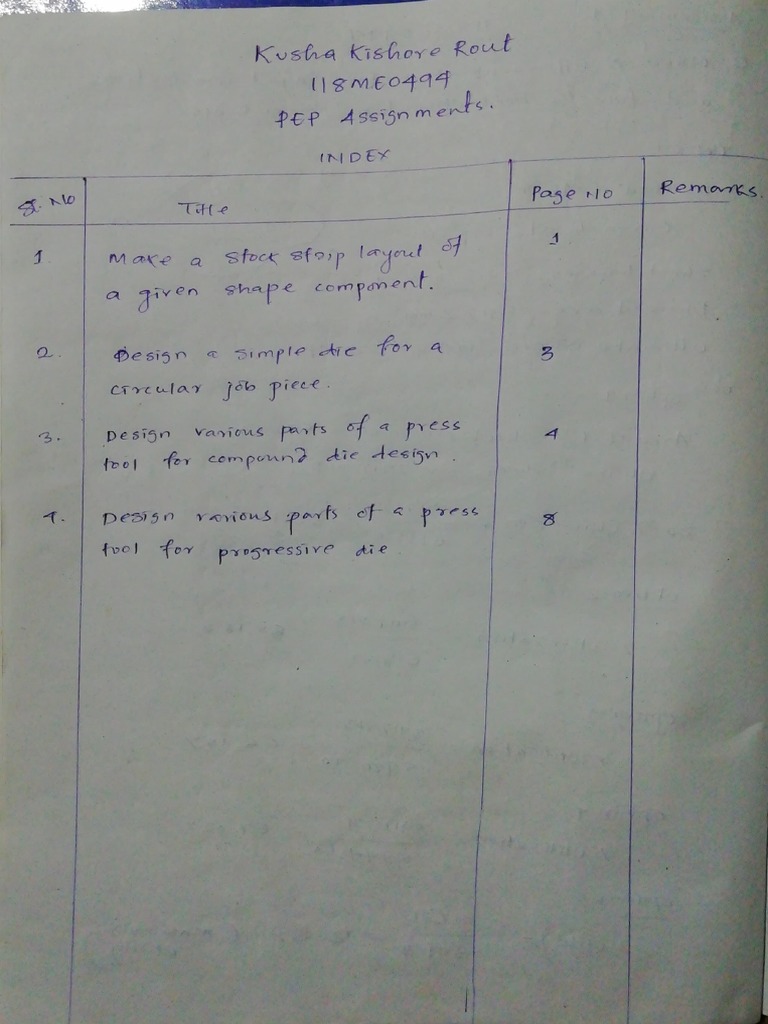 Kusha Kishore Rout
118ME0494
PEP Assignments.
INDEX
Sl. No Title Page No Remarks.
1. Make a stock strip layout of 1
a given shape component.
2. Design a simple die for a 3
circular job piece.
3. Design various parts of a press 4
tool for compound die design.
4. Design various parts of a press 8
tool for progressive die